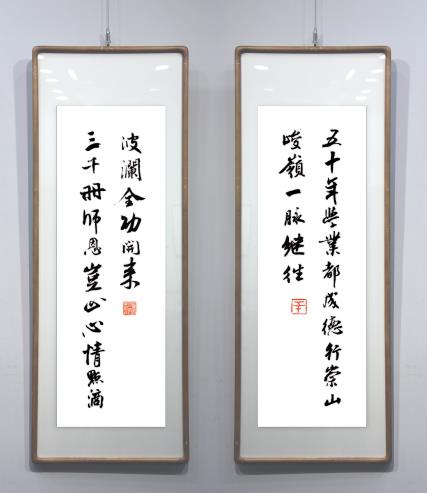 五十年學業都成德行崇山
峻嶺一脉继往
三千冊師恩豈止心情點滴
波瀾全功開来